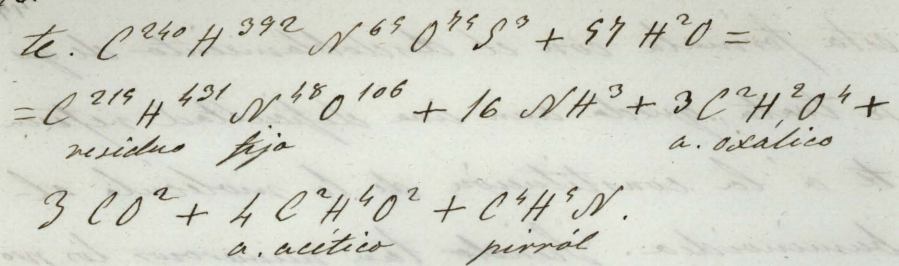 te. C²⁴⁰ H³⁹² N⁶⁵ O⁷⁵ S³ + 57 H²O =
= C²¹⁹ H⁴³¹ N⁴⁸ O¹⁰⁶ + 16 NH³ + 3 C²H²O⁴ +
residuo fijo a. oxálico
3 CO² + 4 C²H⁴O² + C⁴H⁵N.
a. acético pirról